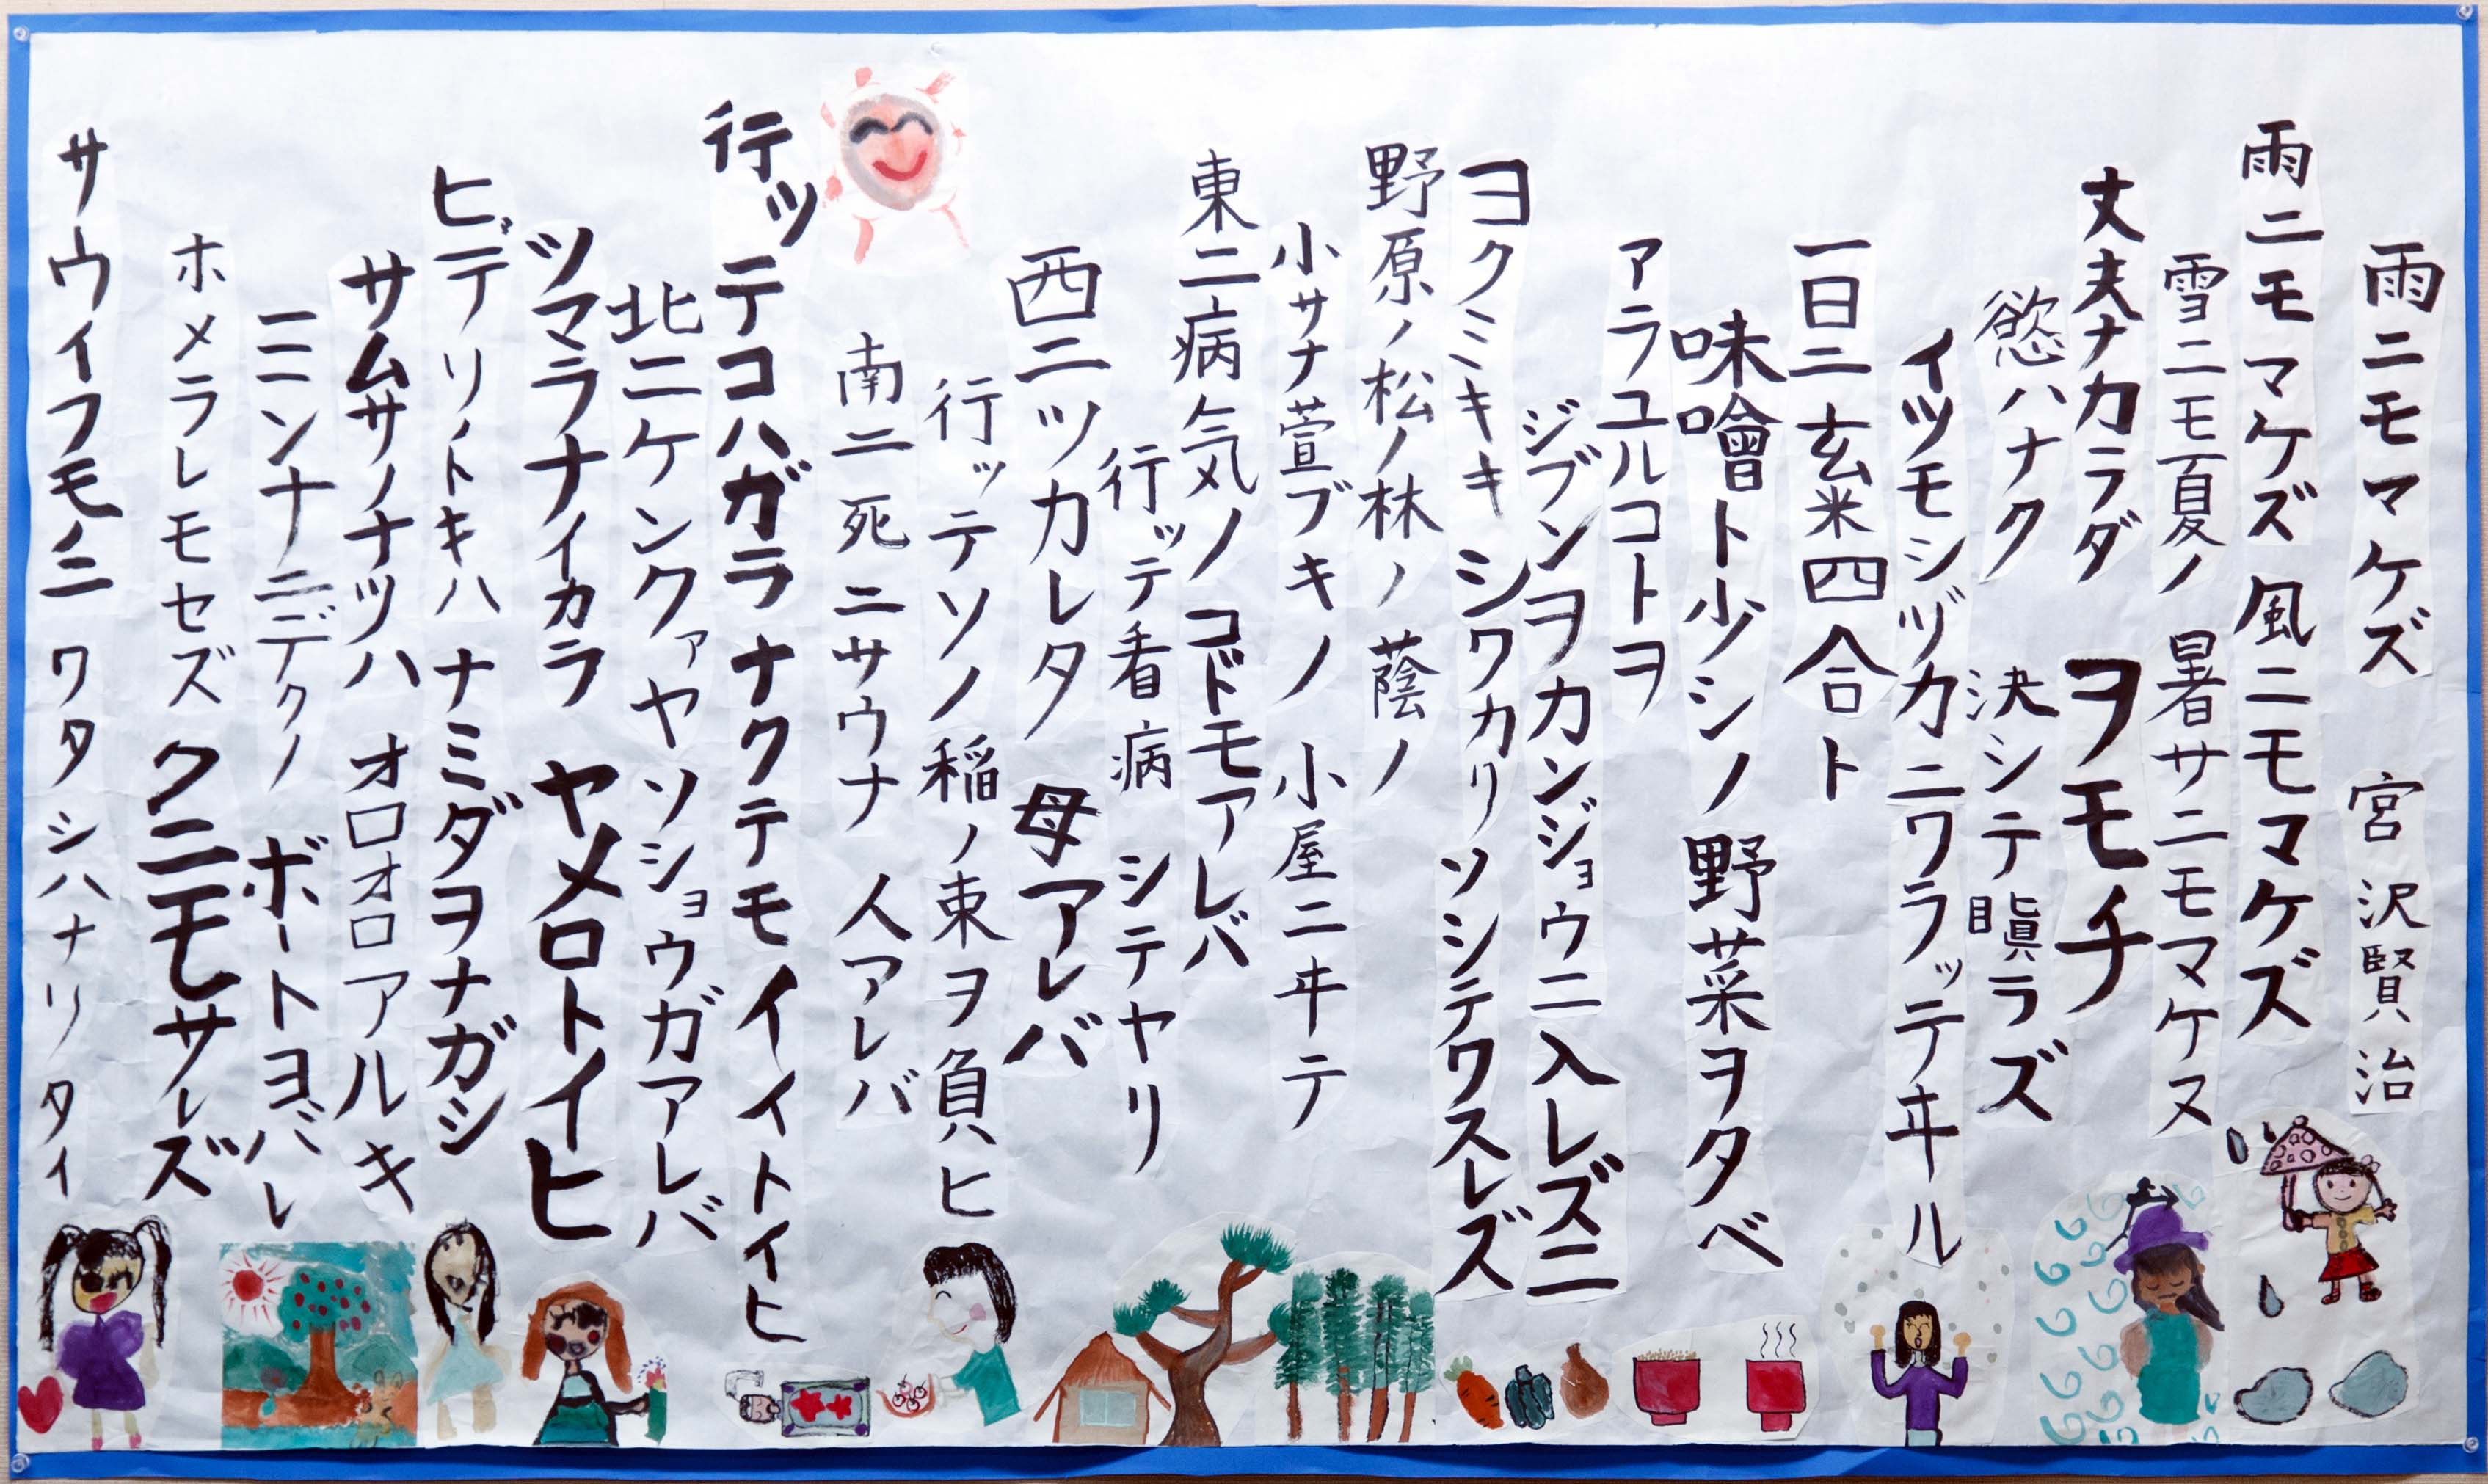 雨ニモマケズ 宮沢賢治
雨ニモマケズ 風ニモマケズ
雪ニモ夏ノ 暑サニモマケヌ
丈夫ナカラダ ヲモチ
慾ハナク 決シテ瞋ラズ
イツモシヅカニワラッテヰル
一日ニ玄米四合ト
味噌ト少シノ野菜ヲタベ
アラユルコトヲ
ジブンヲカンジョウニ入レズニ
ヨクミキキシワカリソシテワスレズ
野原ノ松ノ林ノ蔭ノ
小サナ萱ブキノ 小屋ニヰテ
東ニ病気ノコドモアレバ
行ッテ看病 シテヤリ
西ニツカレタ 母アレバ
行ッテソノ稲ノ束ヲ負ヒ
南ニ死ニサウナ 人アレバ
行ッテコハガラナクテモイイトイヒ
北ニケンクァヤソショウガアレバ
ツマラナイカラ ヤメロトイヒ
ヒデリノトキハ ナミダヲナガシ
サムサノナツハ オロオロアルキ
ミンナニデクノ ボートヨバレ
ホメラレモセズ クニモサレズ
サウイフモノニ ワタシハナリタイ